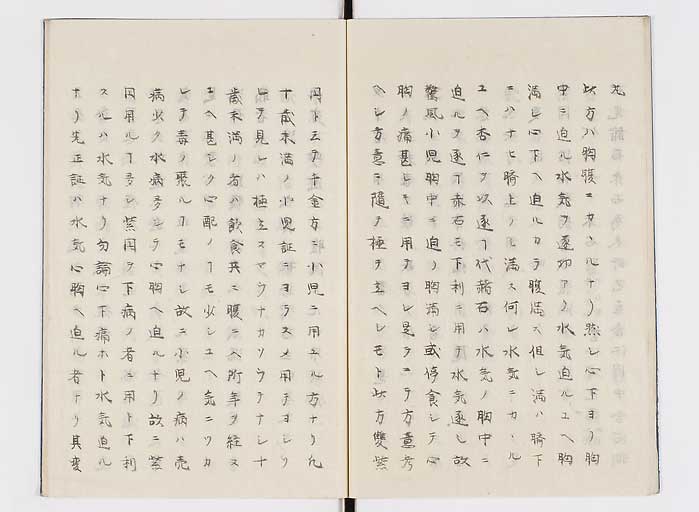 丸
此方ハ胸腹ニカヽルナリ然レ心下ヨリ胸
中ニ迫ル水気ヲ逐切アリ水気迫ルユヘ胸
満シ心下ヘ迫ルカラ腹満ス但シ満ハ臍下
ニハナヒ臍上ノミ満ス何レ水気ニカヽル
ユヘ杏仁ヲ以逐フ代赭石ハ水気ノ胸中ニ
迫ルヲ逐フ赤石モ下利ニ用テ水気逐シ故
驚風小児胸中ニ迫リ胸満シ或停食シテ心
胸ノ痛甚シキニ用テヨシ是ラニテ方意考
ヘシ方意ニ随テ極テ立ヘシモト此方雙紫
円ト云テ千金方ニ小児ニ用ユル方ナリ凡
十歳未満ノ小児証ニヨラスメ用テヨシソ
シテ見レハ極立スマウナカソウテナシ十
歳未満ノ者ハ飲食共ニ腹ニ入所年ヲ経ス
ユヘ甚シク心配ノヿモ少シユヘ気ニツカ
レテ毒ノ聚ルヿモナシ故ニ小児ノ病ハ売
病少ク水病多シテ心胸ヘ迫ルナリ故ニ紫
円用ルヿ多シ紫円ヲ下病ノ者ニ用ト下利
スルハ水気ナリ勿論心下痛ホト水気迫ル
ナリ先正証ハ水気心胸ヘ迫ル者ナリ其変